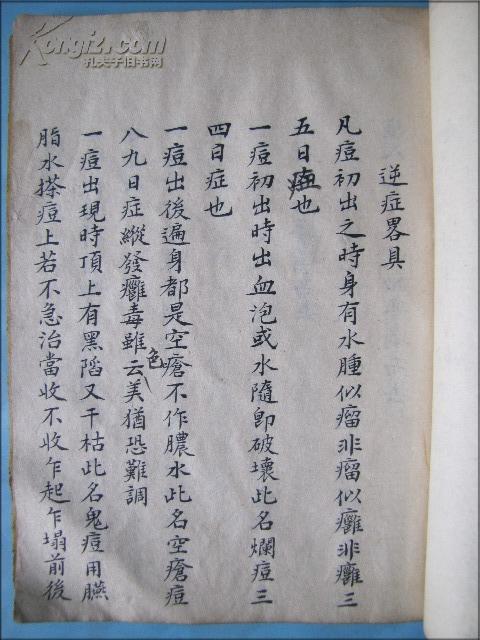 逆症畧具
凡痘初出之時身有水腫似瘤非瘤似癰非癰三
五日症也
一痘初出時出血泡或水隨卽破壞此名爛痘三
四日症也
一痘出後遍身都是空瘡不作膿水此名空瘡痘
八九日症縱發癰毒雖云色美猶恐難調
一痘出現時頂上有黑陷又干枯此名鬼痘用臙
脂水搽痘上若不急治當收不收乍起乍塌前後
Kongfz.com
孔夫子旧书网